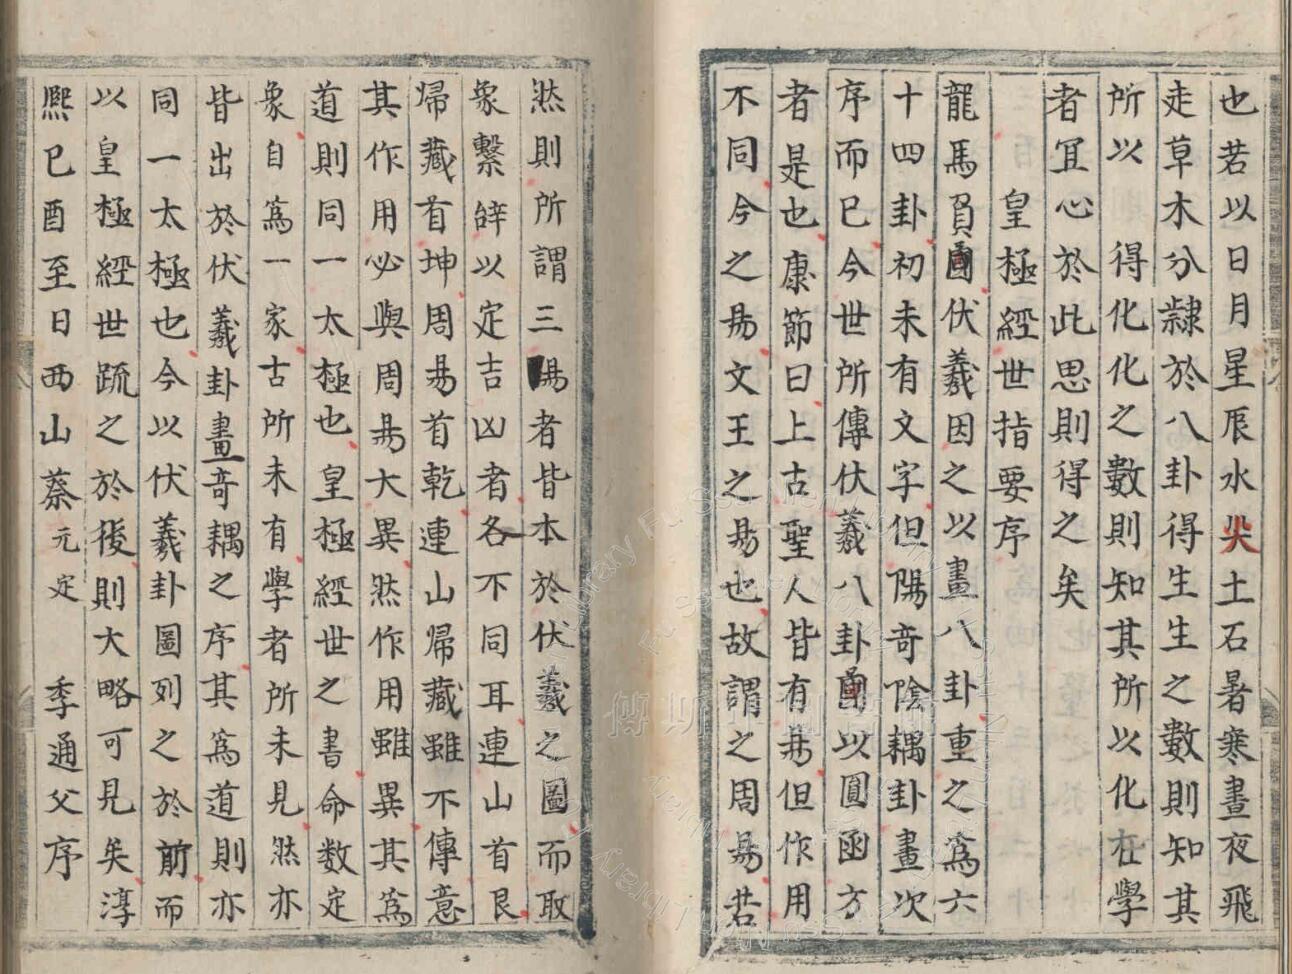 也若以日月星辰水火土石暑寒晝夜飛
走草木分隷於八卦得生生之數則知其
所以　得化化之數則知其所以化在學
者冝心於此思則得之矣
皇極經世指要序
龍馬負圖伏羲因之以畫八卦重之爲六
十四卦初未有文字但陽奇陰耦卦畫次
序而已今世所傳伏羲八卦圖以圓函方
者是也康節曰上古聖人皆有易但作用
不同今之易文王之易也故謂之周易若
然則所謂三易者皆本於伏羲之圖而取
象繫辭以定吉凶者各不同耳連山首艮
歸藏首坤周易首乾連山歸藏雖不傳意
其作用必與周易大異然作用雖異其爲
道則同一太極也皇極經世之書命數定
象自爲一家古所未有學者所未見然亦
皆出於伏羲卦畫奇耦之序其爲道則亦
同一太極也今以伏羲卦圖列之於前而
以皇極經世疏之於後則大略可見矣淳
熈已酉至日西山蔡元定　季通父序
傅斯年圖書館